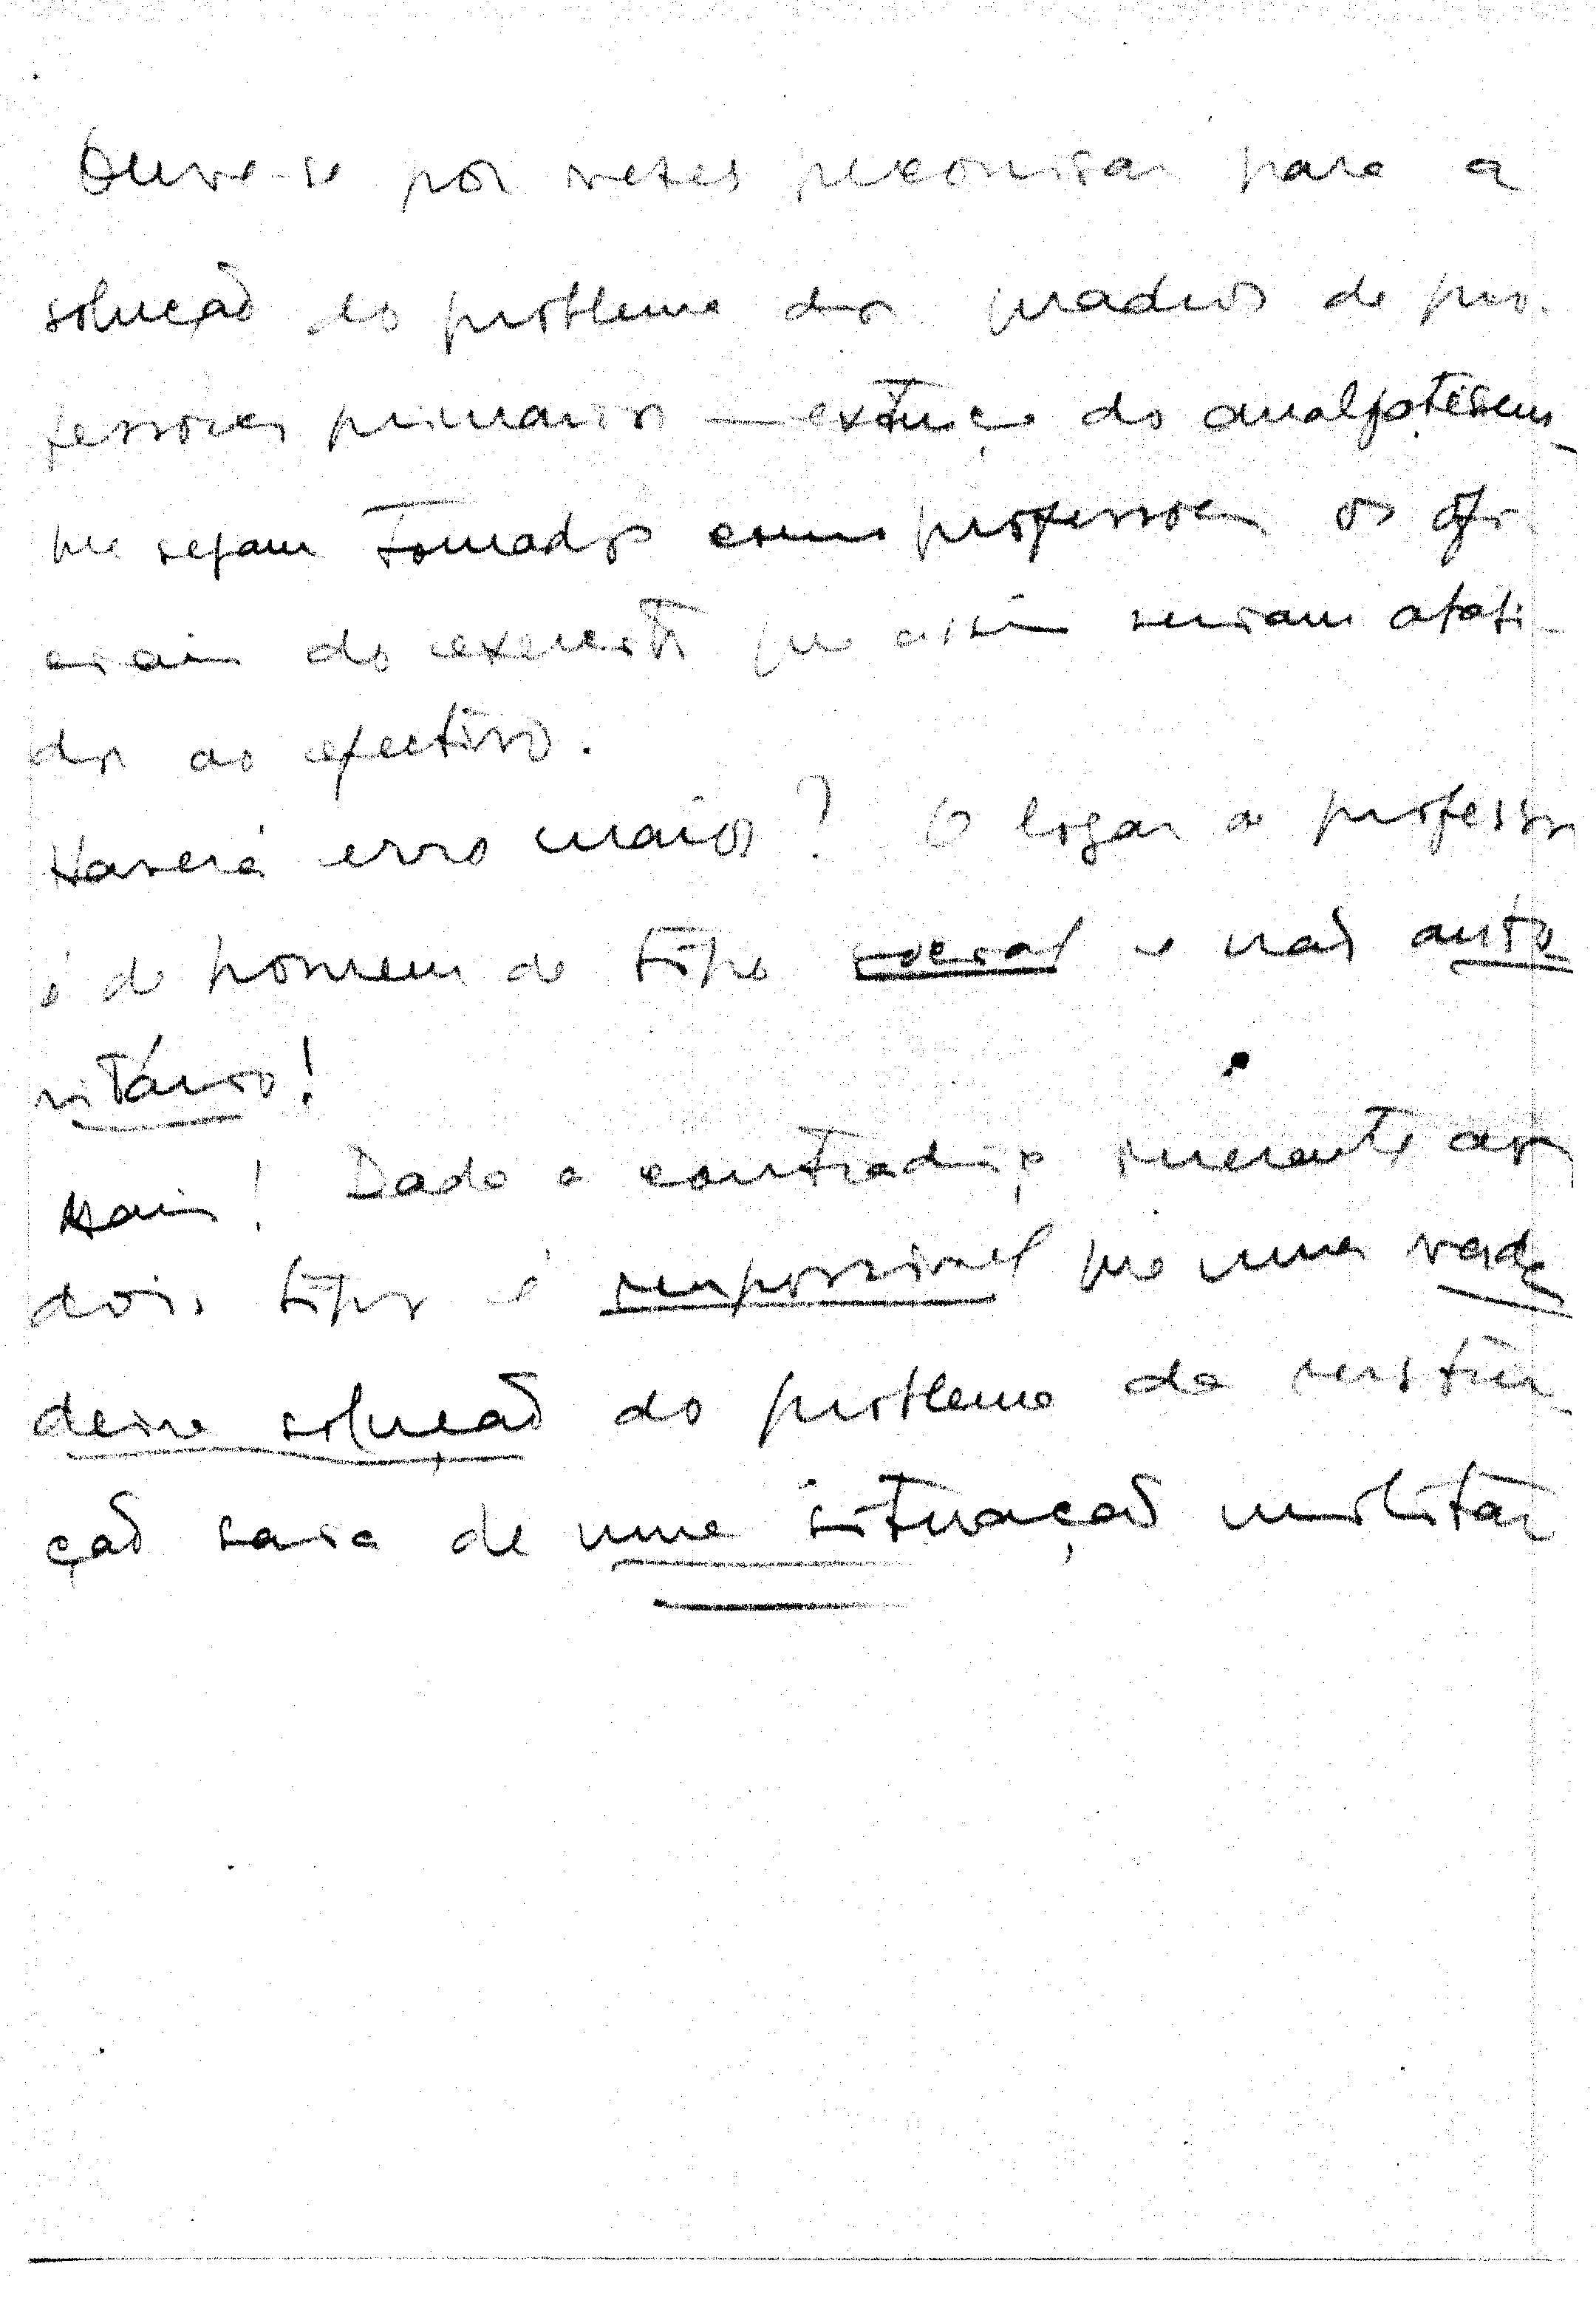 Ouve-se por vezes preconisar para a
solução do problema dos quadros de pro-
fessores primarios — extinção do analfabetismo
que sejam tomados como professores os ofi-
ciais do exercito que assim seriam
dos ao efectivo.
Haverá erro maior? O logar de professor
é do homem de tipo social e não auto
ritário!
Mais! Dada a contradição inerente aos
dois tipos é impossivel que uma verda
deira solução do problema da instru-
ção saia de uma situação militar